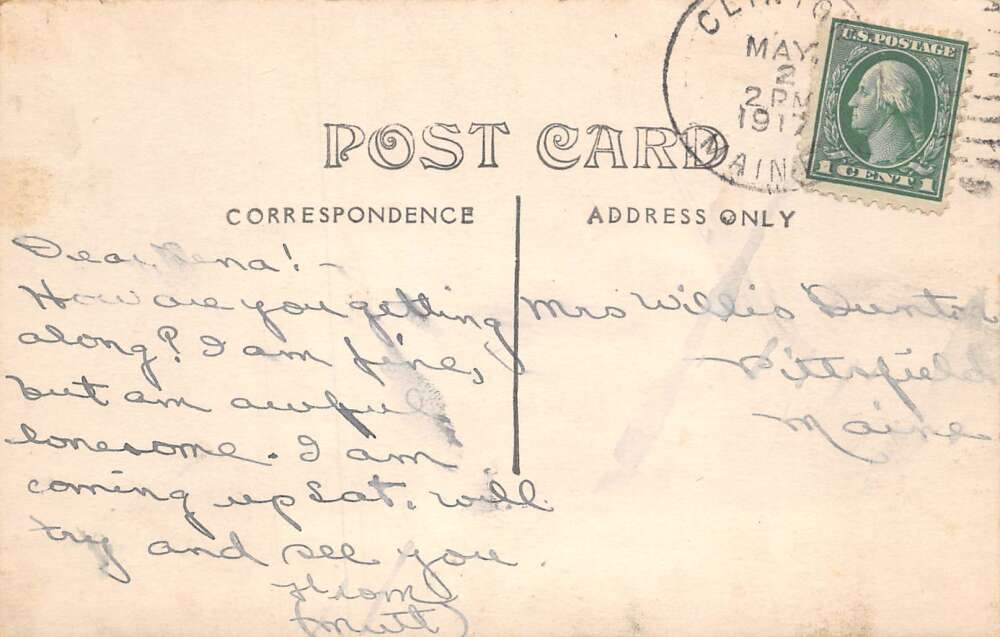 CLINTO
MAY
2
2 PM
1917
MAINE
U.S. POSTAGE
1 CENT 1
POST CARD
CORRESPONDENCE
ADDRESS ONLY
Dear Rena! -
How are you getting
along? I am fine,
but am awful
lonesome. I am
coming up Sat. will
try and see you
From
Mutt
Mrs Willis Dunton
Pittsfield
Maine